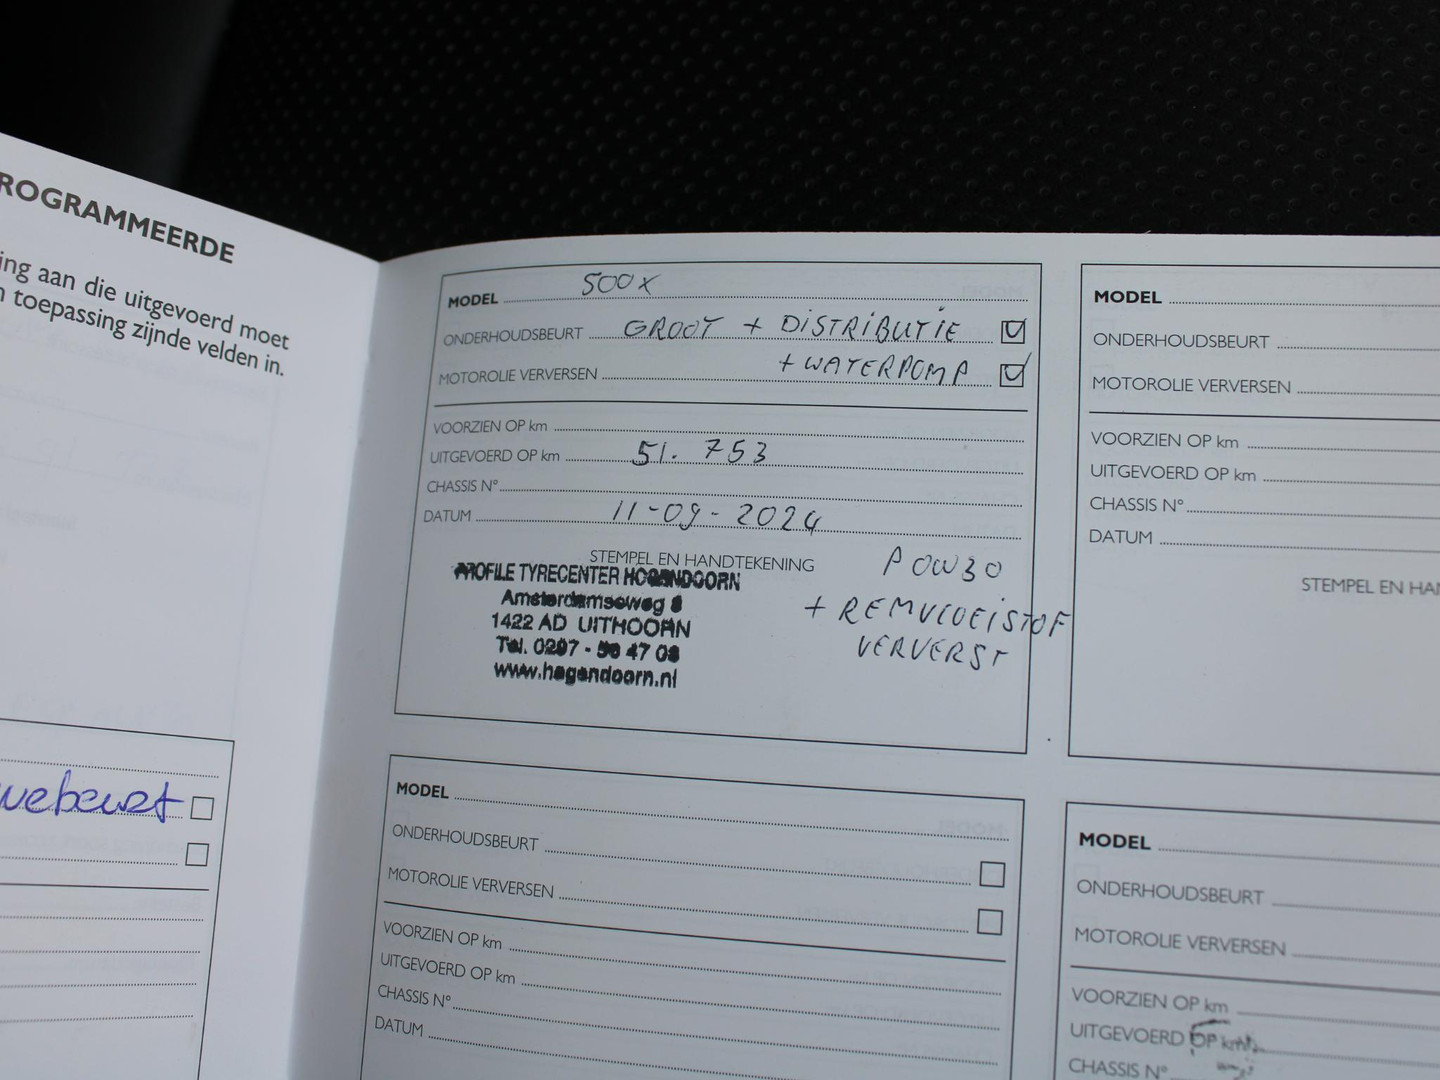 ROGRAMMEERDE
ing aan die uitgevoerd moet
toepassing zijnde velden in.
MODEL 500X
ONDERHOUDSBEURT GROOT + DISTRIBUTIE
MOTOROLIE VERVERSEN + WATERPOMP
VOORZIEN OP km
UITGEVOERD OP km 51.753
CHASSIS N°
DATUM 11-09-2024
STEMPEL EN HANDTEKENING
PROFILE TYRECENTER HOGENDOORN
Amsterdamseweg 8
1422 AD UITHOORN
Tel. 0297 - 56 47 08
www.hogendoorn.nl
POW30
+ REMVLOEISTOF
VERVERST
MODEL
ONDERHOUDSBEURT
MOTOROLIE VERVERSEN
VOORZIEN OP km
UITGEVOERD OP km
CHASSIS N°
DATUM
STEMPEL EN HAN
MODEL
ONDERHOUDSBEURT
MOTOROLIE VERVERSEN
VOORZIEN OP km
UITGEVOERD OP km
CHASSIS N°
DATUM
MODEL
ONDERHOUDSBEURT
MOTOROLIE VERVERSEN
VOORZIEN OP km
UITGEVOERD OP km
CHASSIS N°